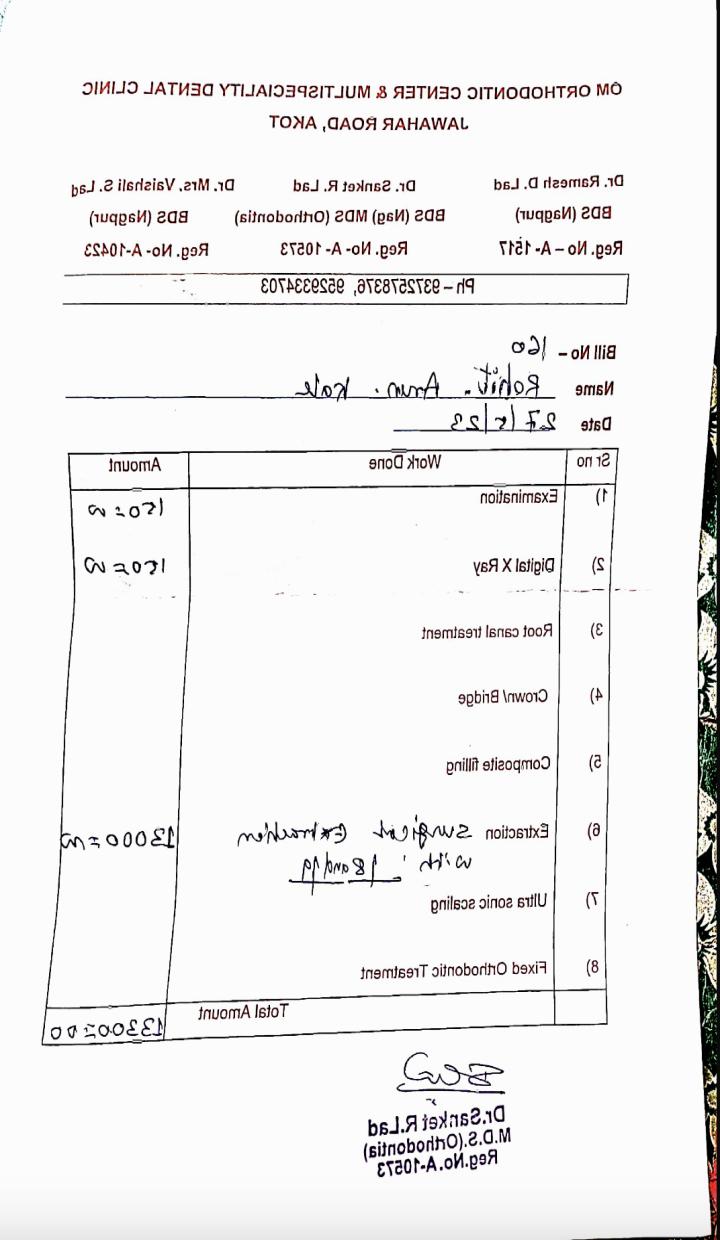 OM ORTHODONTIC CENTER & MULTISPECIALITY DENTAL CLINIC
JAWAHAR ROAD, AKOT
Dr. Ramesh D. Lad Dr. Sanket R. Lad Dr. Mrs. Vaishali S. Lad
BDS (Nagpur) BDS (Nag) MDS (Orthodontia) BDS (Nagpur)
Reg. No – A- 1517 Reg. No.- A- 10573 Reg. No- A-10423
Ph – 9372578376, 9529334703
Bill No – 160
Name Rohit. Arun. Kale
Date 27/5/23
Sr no Work Done Amount
1) Examination 150=00
2) Digital X Ray 150=00
3) Root canal treatment
4) Crown/ Bridge
5) Composite filling
6) Extraction Surgical Extraction 13000=00
with
7) Ultra sonic scaling
8) Fixed Orthodontic Treatment
Total Amount 13300=00
Dr.Sanket R.Lad
M.D.S.(Orthodontia)
Reg.No.A-10573